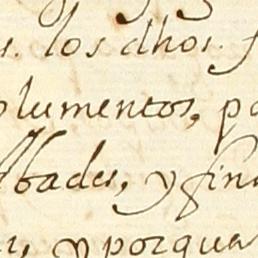 . los dhos.
olumentos, pa
Abades, y fina
, y porque